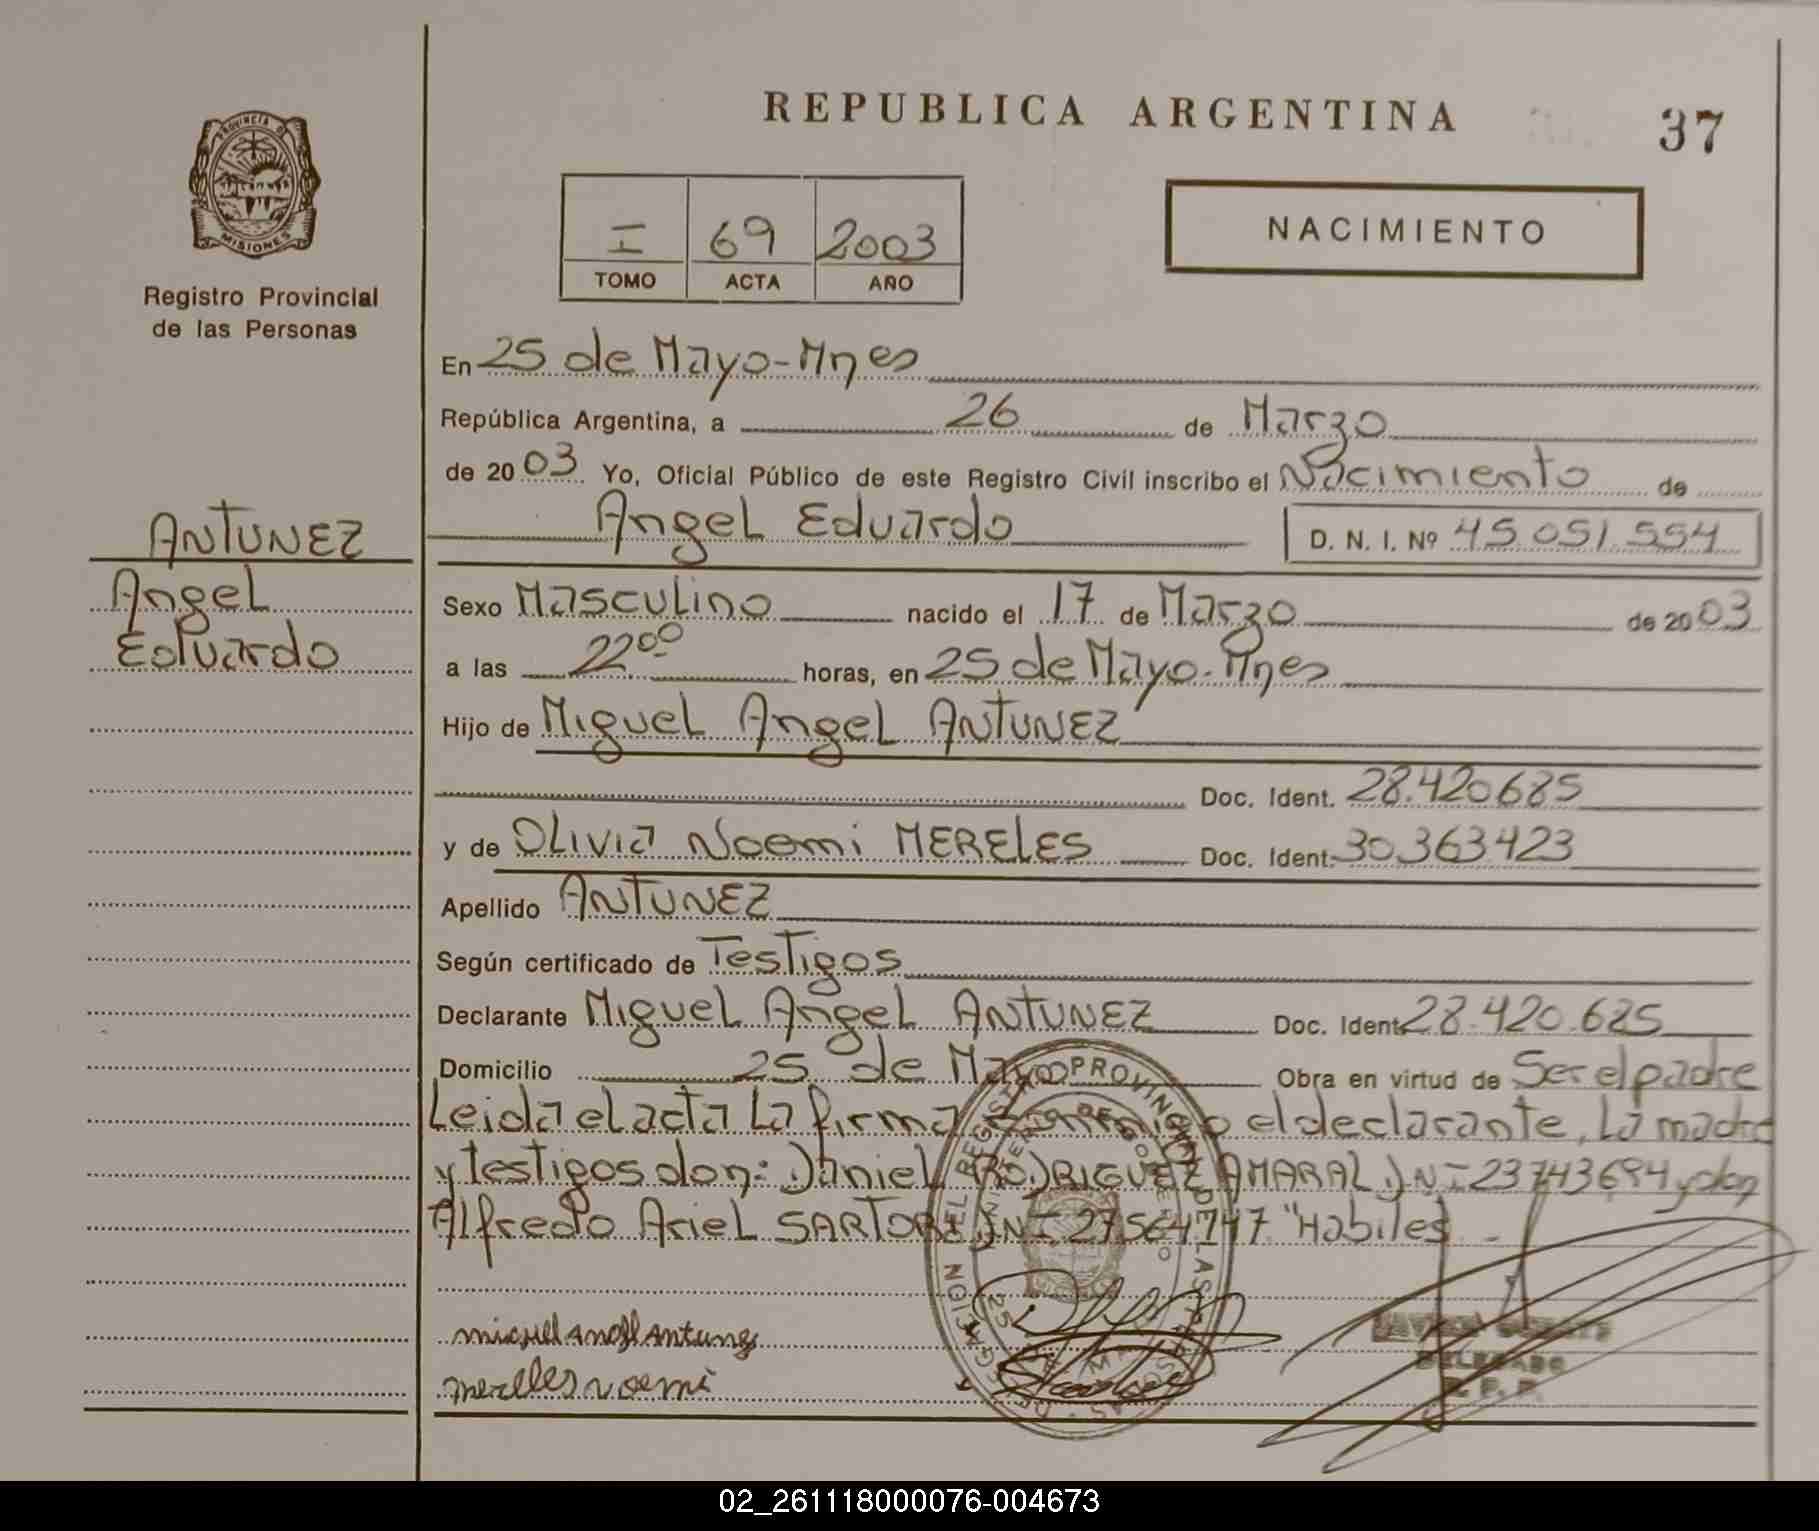 REPUBLICA ARGENTINA
37
PROVINCIA DE
MISIONES
Registro Provincial
de las Personas
I 69 2003
TOMO ACTA AÑO
NACIMIENTO
En 25 de Mayo-Mnes
República Argentina, a 26 de Marzo
de 2003 Yo, Oficial Público de este Registro Civil inscribo el Nacimiento de
Angel Eduardo D. N. I. Nº 45.051.554
ANTUNEZ
Angel
Eduardo
Sexo Masculino nacido el 17 de Marzo de 2003
a las 22⁰⁰ horas, en 25 de Mayo-Mnes
Hijo de Miguel Angel ANTUNEZ
Doc. Ident. 28.420.685
y de Olivia Noemi MERELES Doc. Ident. 30.363.423
Apellido ANTUNEZ
Según certificado de Testigos
Declarante Miguel Angel ANTUNEZ Doc. Ident. 28.420.685
Domicilio 25 de Mayo Obra en virtud de Ser el padre
Leida el acta La firma conmigo el declarante, La madre
y testigos don: Daniel RODRIGUEZ AMARAL DNI 23743694 y don
Alfredo Ariel SARTORI DNI 27564747 "Habiles
miguel angel antunez
mereles noemi
DELEGADO
R. P. P.
02_261118000076-004673